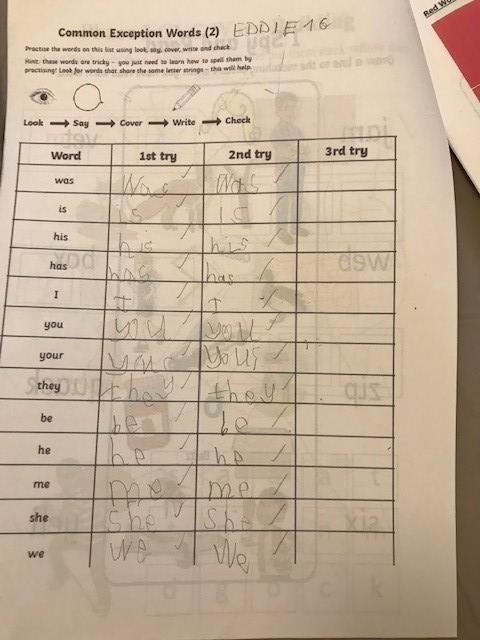 Common Exception Words (2) EDDIE 16
Practise the words on this list using look, say, cover, write and check.
Hint: these words are tricky – you just need to learn how to spell them by
practising! Look for words that share the same letter strings – this will help.
Look → Say → Cover → Write → Check
Word 1st try 2nd try 3rd try
was Was ✓ Was ✓
is is ✓ is ✓
his his ✓ his ✓
has has ✓ has ✓
I I ✓ I ✓
you you ✓ you ✓
your ✓ ✓
they they ✓ they ✓
be be ✓ be ✓
he he ✓ he ✓
me me ✓ me ✓
she she ✓ she ✓
we we ✓ We ✓
Red Wo